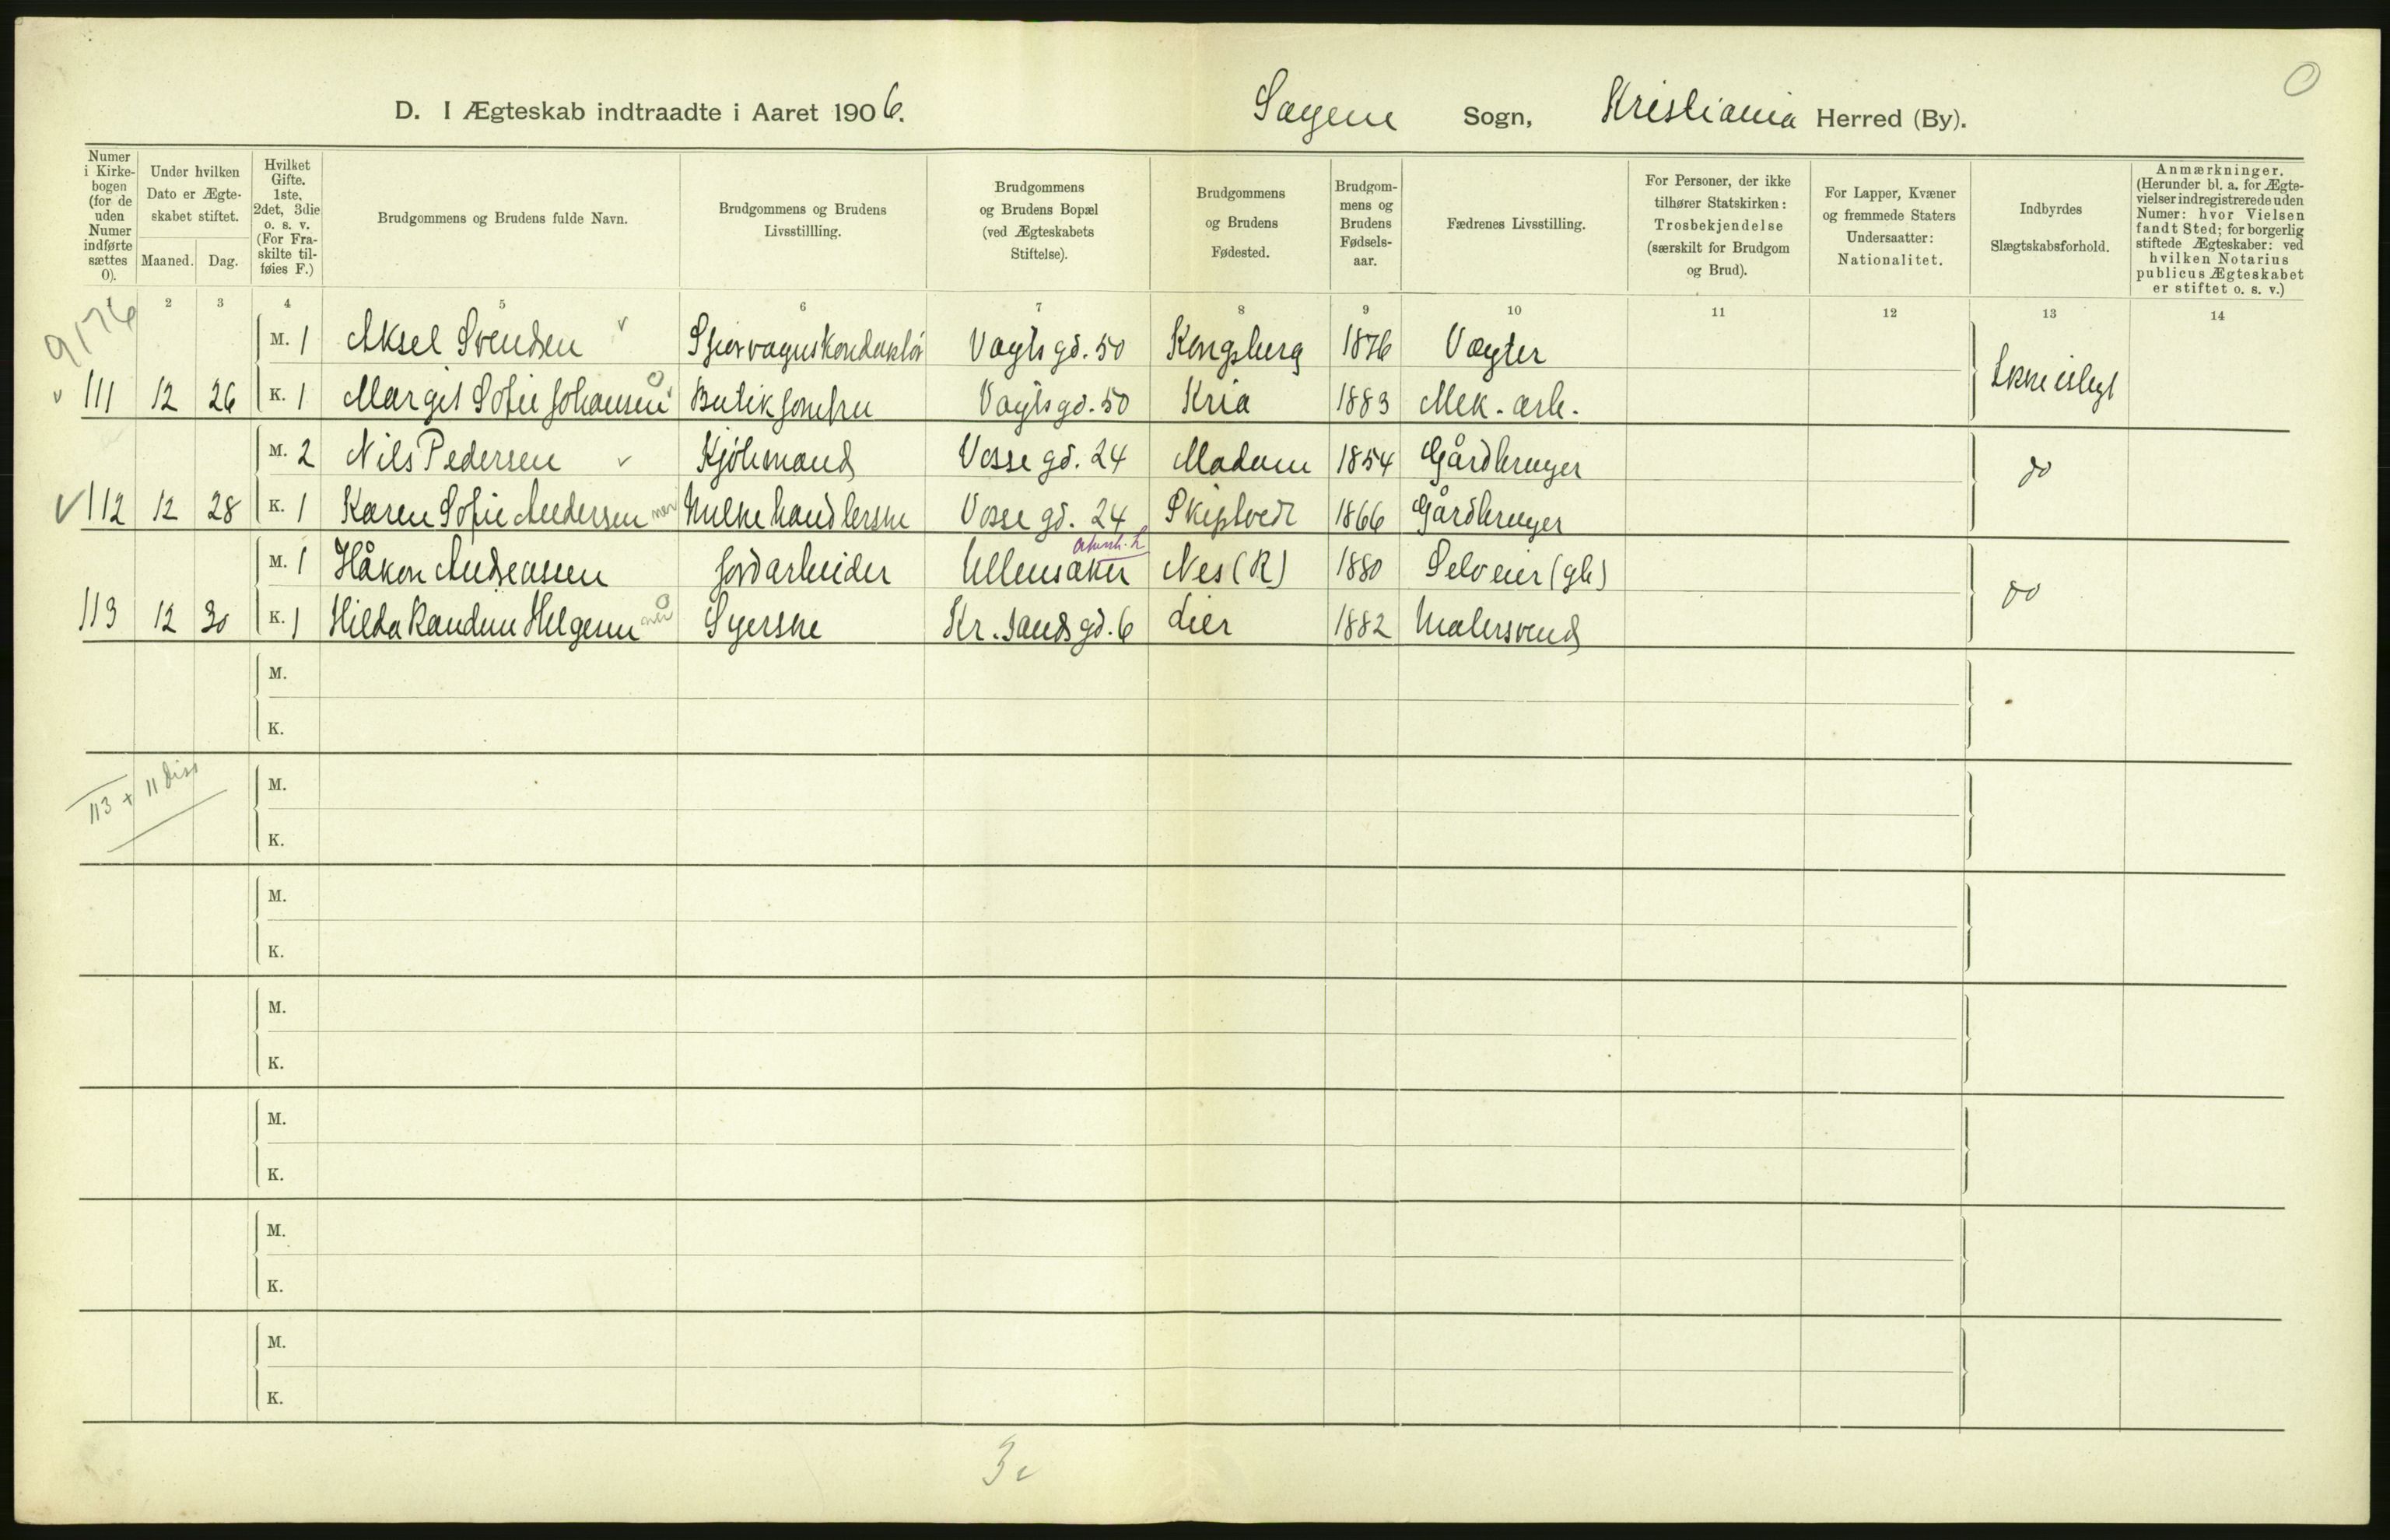 D. I Ægteskab indtraadte i Aaret 1906. Sagene Sogn, Kristiania Herred (By).
Numer i Kirkebogen (for de uden Numer indførte sættes 0).
Under hvilken Dato er Ægteskabet stiftet.
Maaned. Dag.
Hvilket Gifte. 1ste, 2det, 3die o. s. v. (For Fraskilte tilføies F.)
Brudgommens og Brudens fulde Navn.
Brudgommens og Brudens Livsstillling.
Brudgommens og Brudens Bopæl (ved Ægteskabets Stiftelse).
Brudgommens og Brudens Fødested.
Brudgommens og Brudens Fødselsaar.
Fædrenes Livsstilling.
For Personer, der ikke tilhører Statskirken: Trosbekjendelse (særskilt for Brudgom og Brud).
For Lapper, Kvæner og fremmede Staters Undersaatter: Nationalitet.
Indbyrdes Slægtskabsforhold.
Anmærkninger. (Herunder bl. a. for Ægtevielser indregistrerede uden Numer: hvor Vielsen fandt Sted; for borgerlig stiftede Ægteskaber: ved hvilken Notarius publicus Ægteskabet er stiftet o. s. v.)
1 2 3 4 5 6 7 8 9 10 11 12 13 14
9176
M. 1 Aksel Svendsen Sporvognskonduktør Vogts gd. 50 Kongsberg 1876 Vægter
111 12 26 K. 1 Margit Sofie Johansen Butikjomfru Vogts gd. 50 Kria 1883 Mek. arb. Ikke i slegt
M. 2 Nils Pedersen Kjøbmand Vosse gd. 24 Modum 1854 Gårdbruger do
112 12 28 K. 1 Karen Sofie Andersen Melkehandlerske Vosse gd. 24 Skiptvedt 1866 Gårdbruger
M. 1 Håkon Andreassen Jordarbeider Ullensaker Akersh. Nes (R) 1880 Selveier (gb) do
113 12 30 K. 1 Hilda Randine Helgesen Syerske Kr.sands gd. 6 Lier 1882 Malersvend
M.
K.
113 + 11 Diss
M.
K.
M.
K.
M.
K.
M.
K.
M.
K.
M.
K.